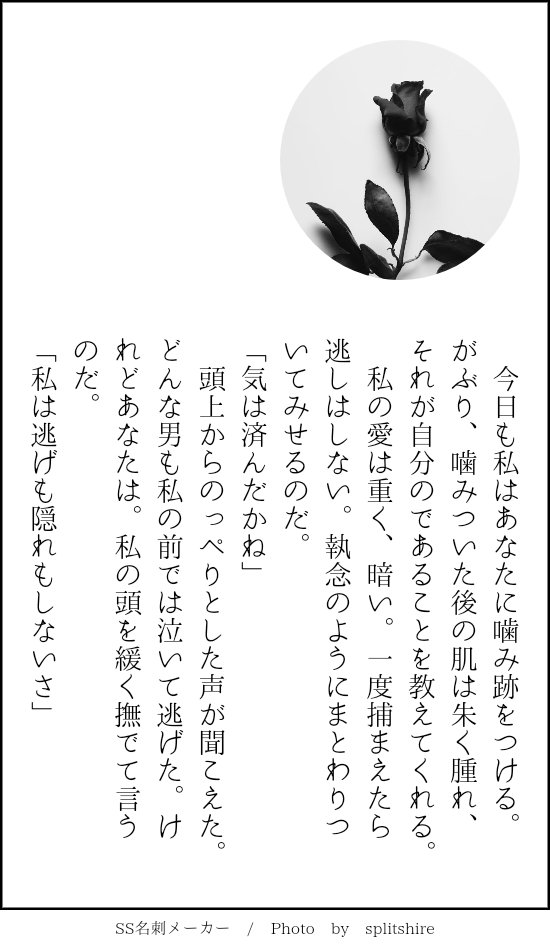 今日も私はあなたに噛み跡をつける。
がぶり、噛みついた後の肌は朱く腫れ、
それが自分のであることを教えてくれる。
　私の愛は重く、暗い。一度捕まえたら
逃しはしない。執念のようにまとわりつ
いてみせるのだ。
「気は済んだかね」
　頭上からのっぺりとした声が聞こえた。
どんな男も私の前では泣いて逃げた。け
れどあなたは。私の頭を緩く撫でて言う
のだ。
「私は逃げも隠れもしないさ」
SS名刺メーカー　/　Photo　by　splitshire